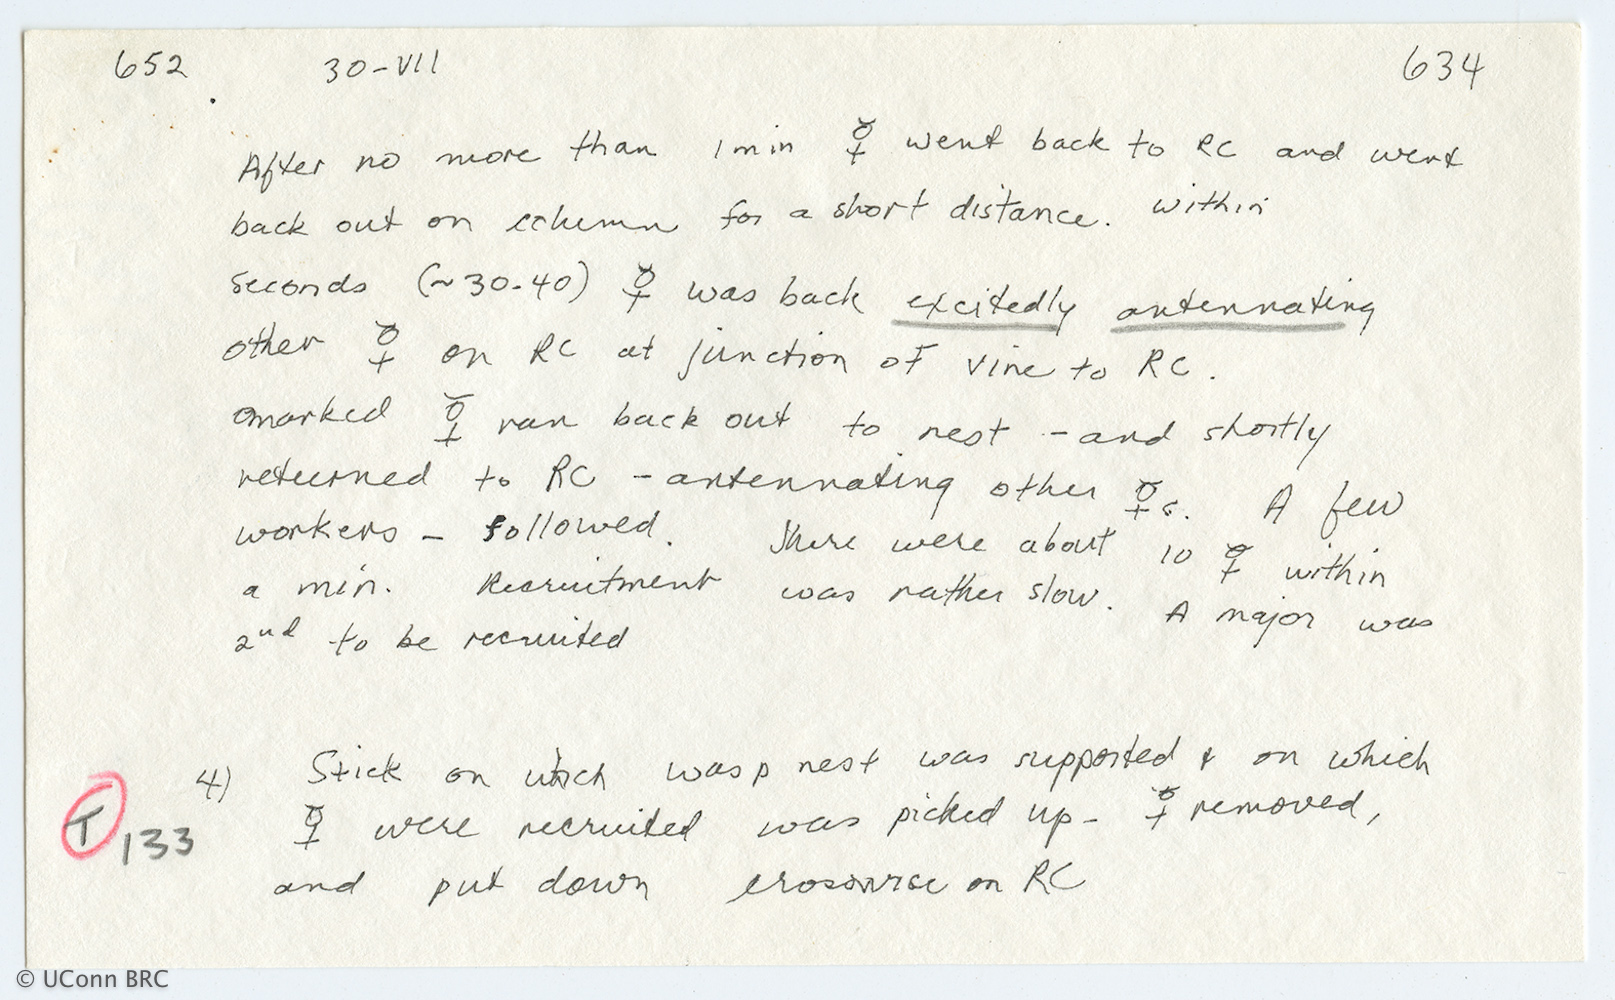 652 30-VII 634
After no more than 1 min ☿ went back to RC and went
back out on column for a short distance. within
seconds (~30-40) ☿ was back excitedly antennating
other ☿ on RC at junction of vine to RC.
marked ☿ ran back out to nest - and shortly
returned to RC - antennating other ☿s. A few
workers - followed. There were about 10 ☿ within
a min. Recruitment was rather slow. A major was
2nd to be recruited
4) Stick on which wasp nest was supported & on which
☿ were recruited was picked up - ☿ removed,
T 133
and put down crosswise on RC
© UConn BRC